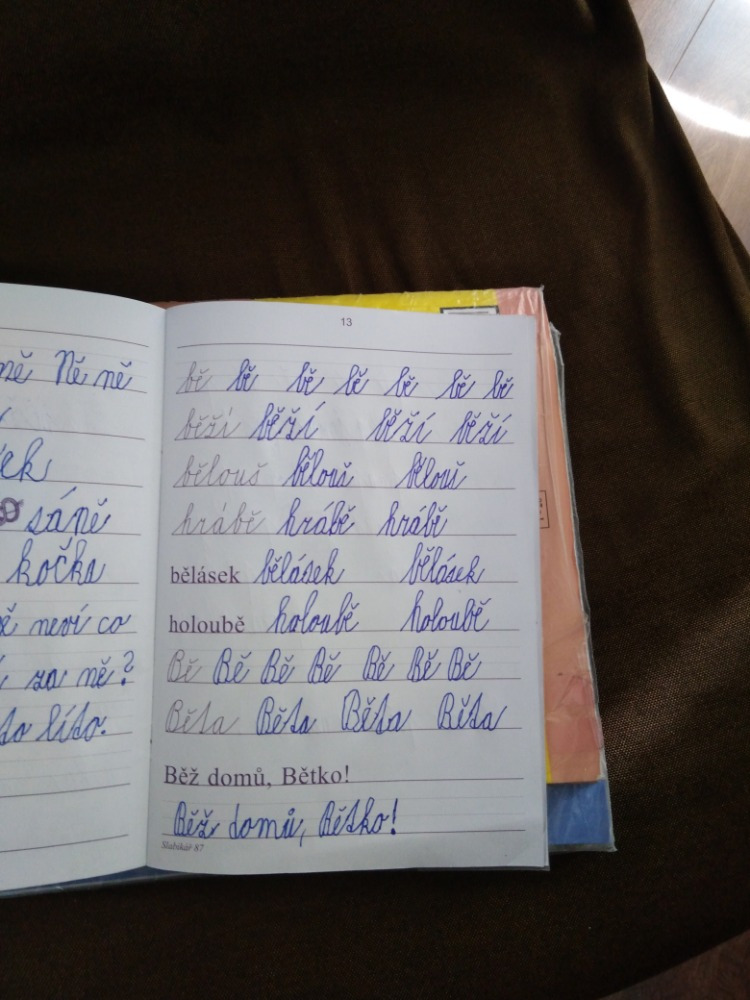 ně Ně ně
ek
sáně
kočka
ě neví co
za ně?
to líto.
13
bě bě bě bě bě bě bě
běží běží běží běží
bělouš bělouš bělouš
hrábě hrábě hrábě
bělásek bělásek bělásek
holoubě holoubě holoubě
Bě Bě Bě Bě Bě Bě Bě
Běta Běta Běta Běta
Běž domů, Bětko!
Běž domů, Bětko!
Slabikář 87